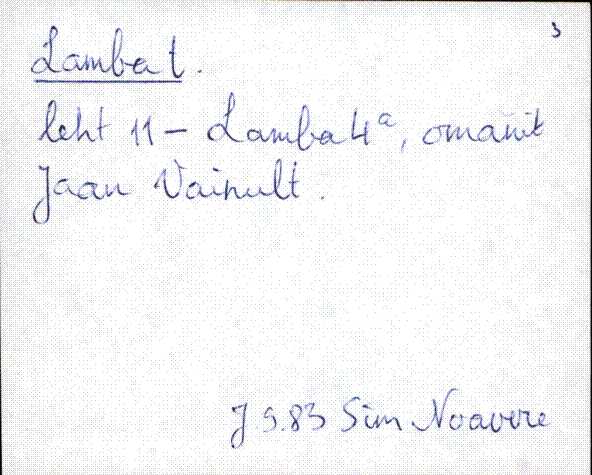 3
Lamba t.
leht 11 – Lamba 4ª, omanik
Jaan Vainult.
J S.83 Sim Noavere